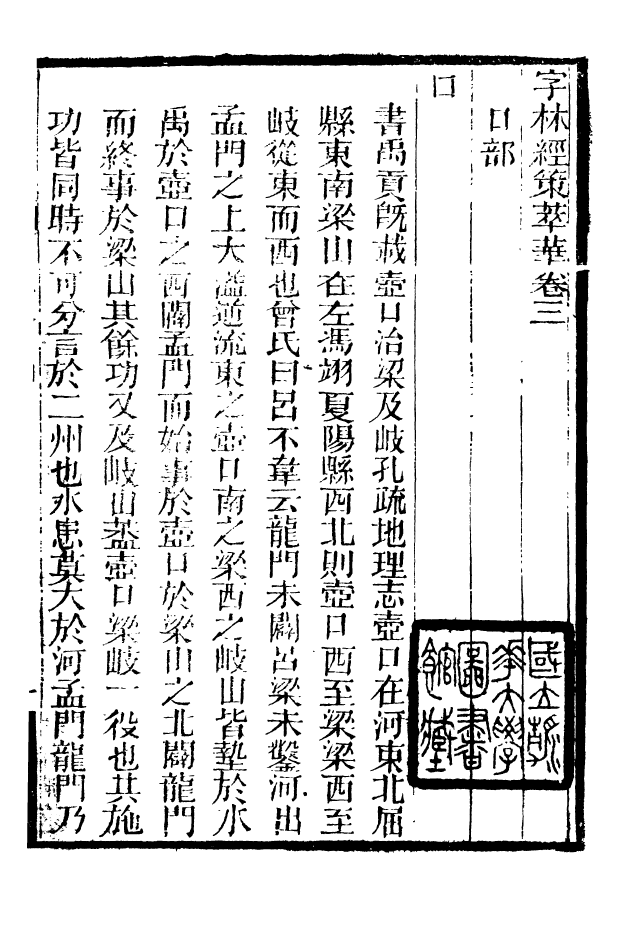 字林經策萃華卷三
口部
口
書禹貢旣載壺口治梁及岐孔疏地理志壺口在河東北屈
縣東南梁山在左馮翊夏陽縣西北則壺口西至梁梁西至
岐從東而西也曾氏曰呂不韋云龍門未闢呂梁未鑿河出
孟門之上大溢逆流東之壺口南之梁西之岐山皆墊於水
禹於壺口之西闢孟門而始事於壺口於梁山之北闢龍門
而終事於梁山其餘功又及岐山蓋壺口梁岐一役也其施
功皆同時不可分言於二州也水患莫大於河孟門龍門乃
國立
大學
圖書
館藏